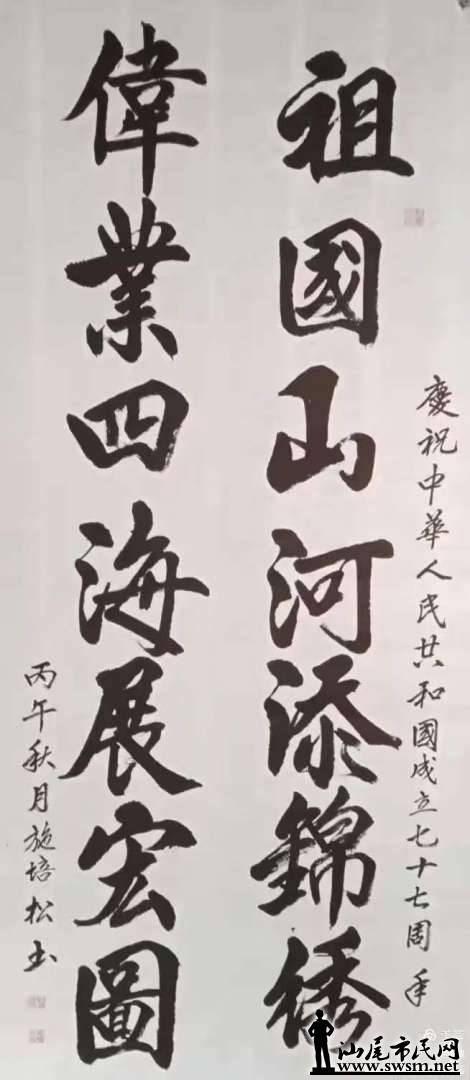 慶祝中華人民共和國成立七十七周年
祖國山河添錦绣
偉業四海展宏圖
丙午秋月施培松书
汕尾市民网
www.swsm.net